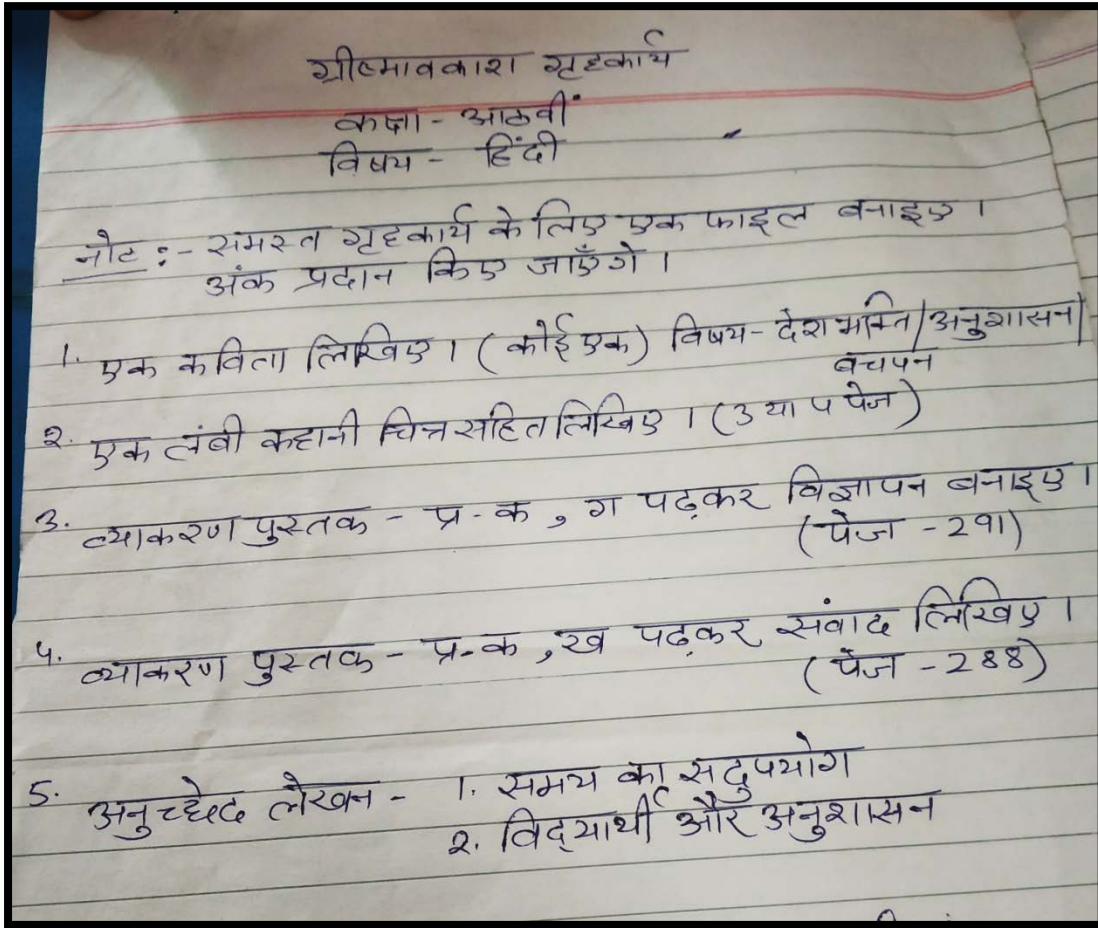 ग्रीष्मावकाश गृहकार्य
कक्षा - आठवीं
विषय - हिंदी
नोट :- समस्त गृहकार्य के लिए एक फाइल बनाइए ।
अंक प्रदान किए जाएँगे ।
1. एक कविता लिखिए । (कोई एक) विषय - देशभक्ति/अनुशासन/
बचपन
2. एक लंबी कहानी चित्र सहित लिखिए । (3 या 4 पेज)
3. व्याकरण पुस्तक - प्र - क , ग पढ़कर विज्ञापन बनाइए ।
(पेज - 291)
4. व्याकरण पुस्तक - प्र - क , ख पढ़कर संवाद लिखिए ।
(पेज - 288)
5. अनुच्छेद लेखन - 1. समय का सदुपयोग
2. विद्यार्थी और अनुशासन